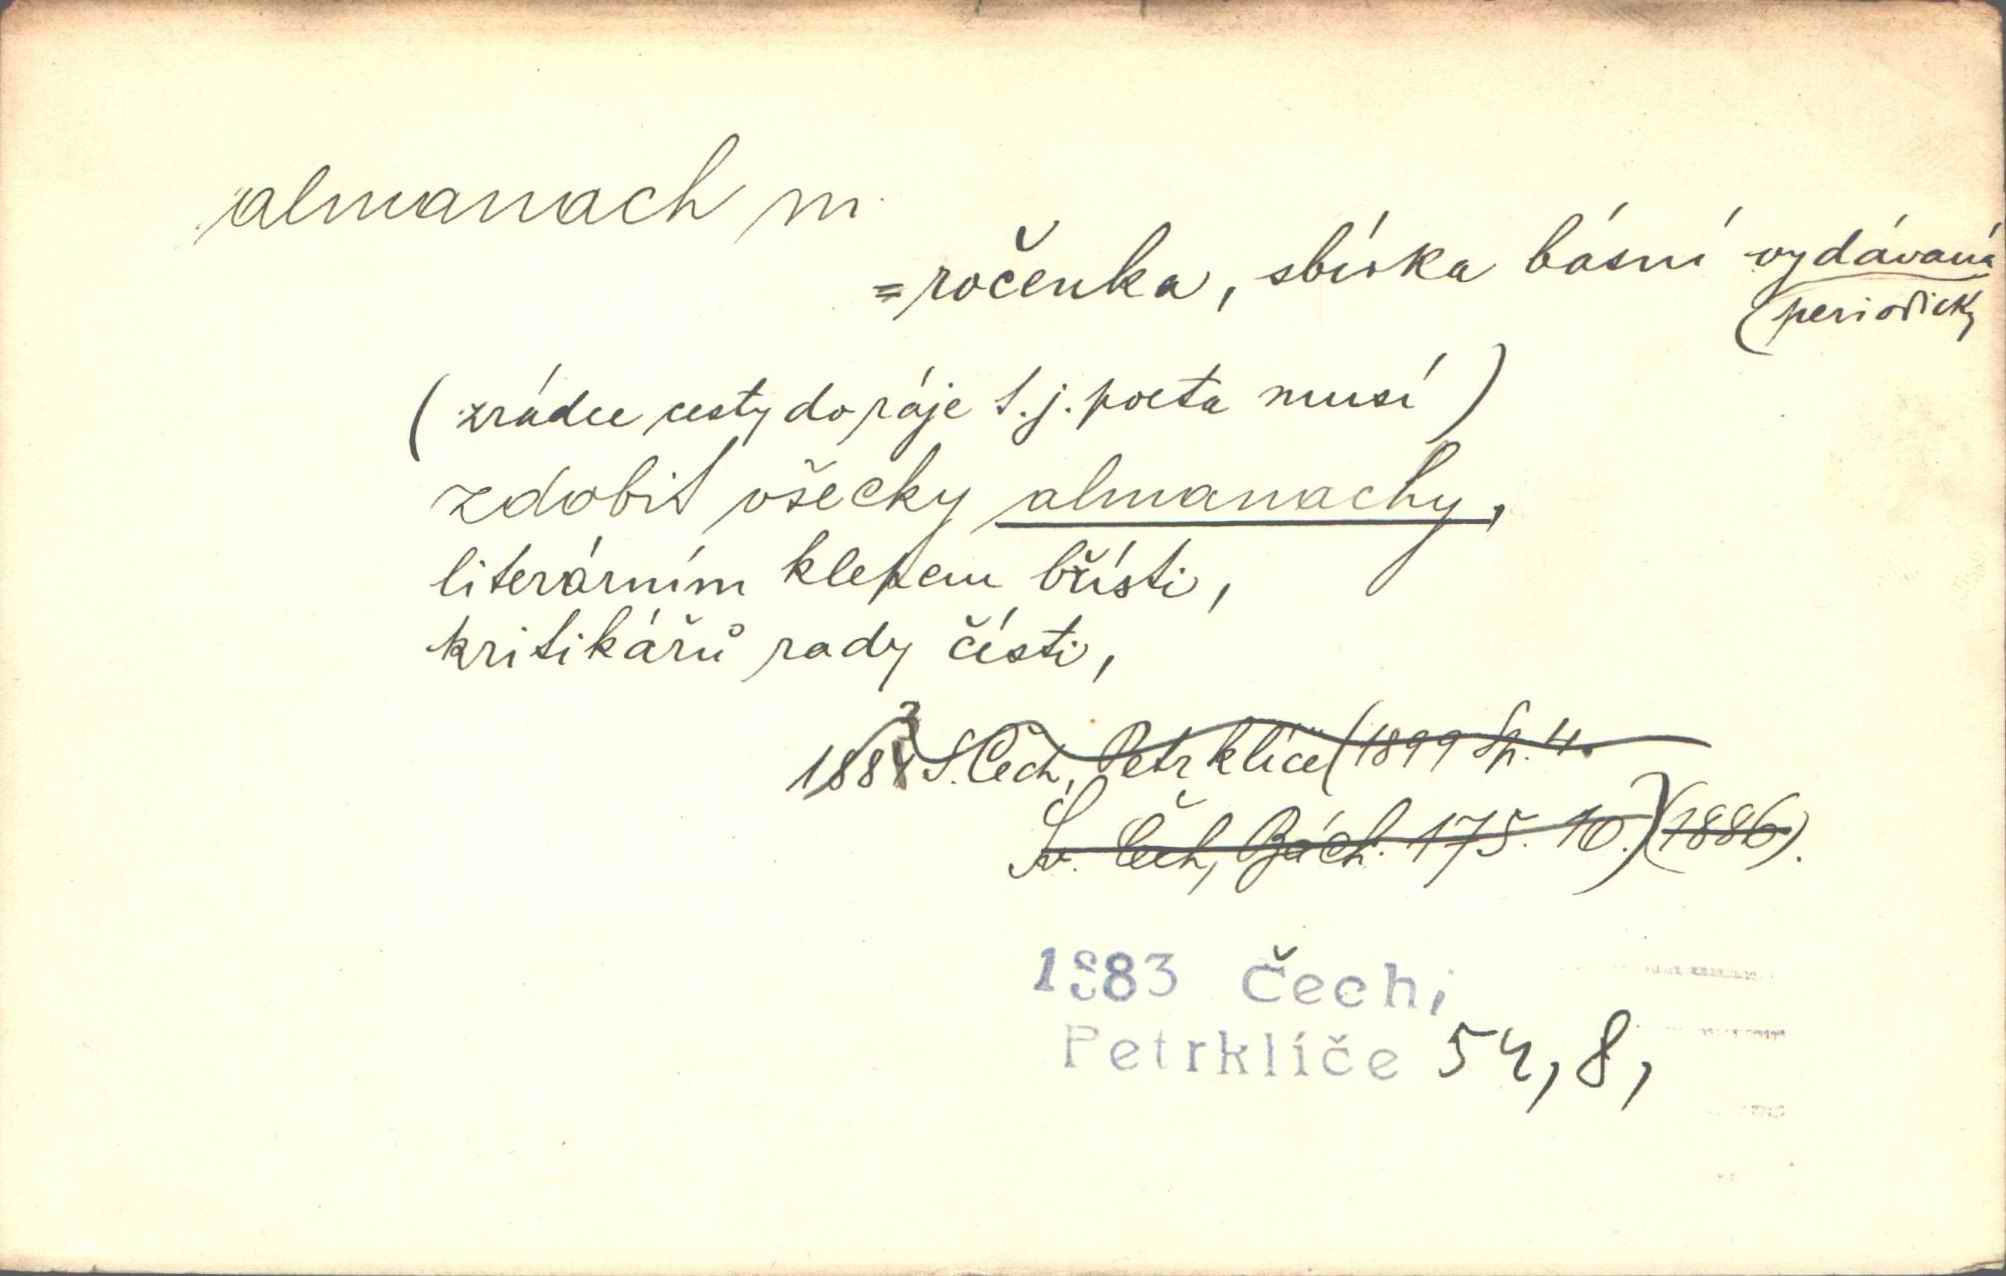 almanach m.
= ročenka, sbírka básní vydávaná
(periodicky
(zrádce cesty do ráje t.j. poeta musí)
zdobit všecky almanachy,
literárním klepem břísti,
kritikářů rady čísti,
1883 S. Čech, Petrklíče (1899 Sp. 4.
Sv. Čech, Bách. 175. 10.) (1886).
1883 Čech,
Petrklíče 54, 8,